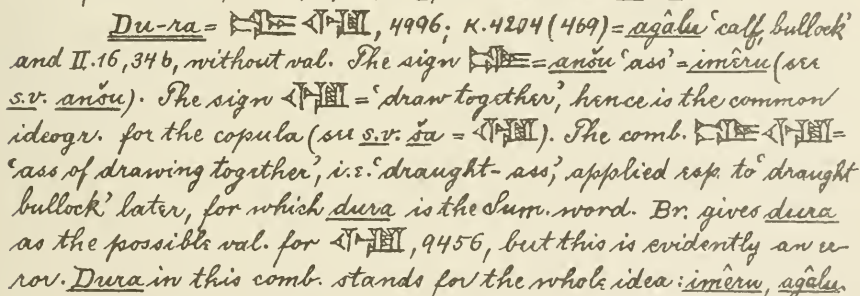 Du-ra = 𒀲 𒅇, 4996; K.4204 (469) = agâlu ‘calf, bullock’
and II.16, 34b, without val. The sign 𒀲 = anšu ‘ass’ = imêru (see
s.v. anšu). The sign 𒅇 = ‘draw together’, hence is the common
ideogr. for the copula (see s.v. ša = 𒅇). The comb. 𒀲 𒅇 =
‘ass of drawing together’, i.e. ‘draught-ass’, applied esp. to ‘draught
bullock’ later, for which dura is the Sum. word. Br. gives dura
as the possible val. for 𒅇, 9456, but this is evidently an er-
ror. Dura in this comb. stands for the whole idea: imêru, agâlu.